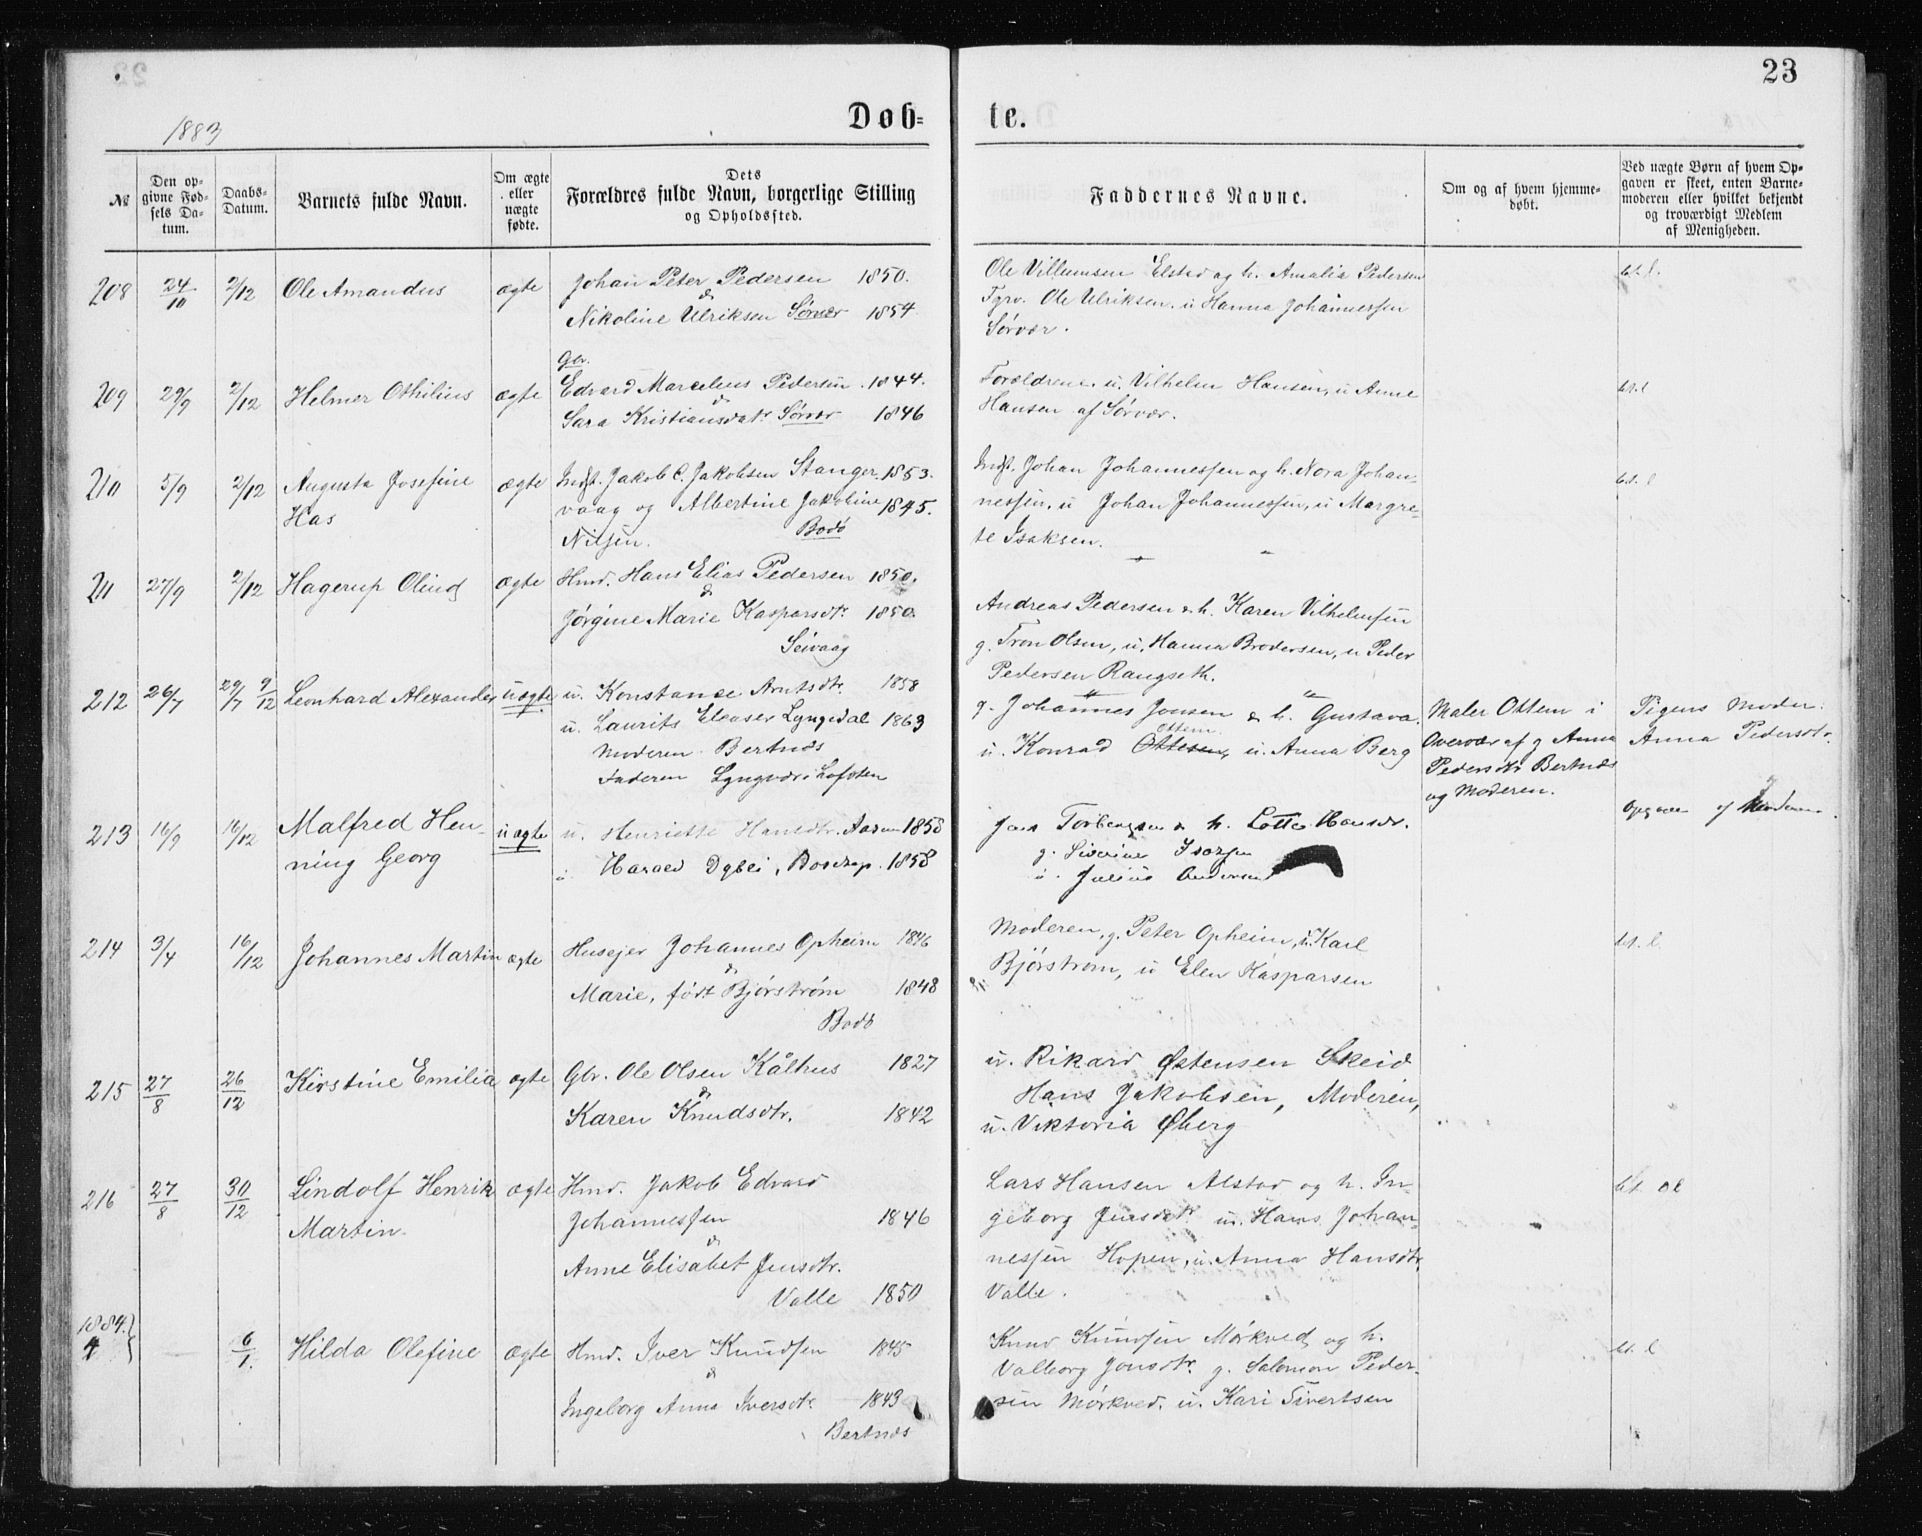 23
1883
Døb- te.
№
Den op-
givne Fød-
sels Da-
tum.
Daabs-
Datum.
Barnets fulde Navn.
Om ægte
eller
uægte
fødte.
Dets
Forældres fulde Navn, borgerlige Stilling
og Opholdssted.
Faddernes Navne.
Om og af hvem hjemme-
døbt.
Ved uægte Børn af hvem Op-
gaven er skeet, enten Barne-
moderen eller hvilket bekjendt
og troværdigt Medlem
af Menigheden.
208 24/10 2/12 Ole Amandus ægte Johan Peter Pedersen 1850.
&
Nikoline Ulriksen Sørvær 1854
Ole Villumsen Elstad og h. Amalia Pedersen
Tgrv. Ole Ulriksen. u Hanna Johannessen
Sørvær.
209 29/9 2/12 Helmer Othilius ægte Gbr.
Edvard Marcelius Pedersen 1844.
&
Sara Kristiansdatr Sørvær 1846
Forældrene. u. Vilhelm Hansen, u Anne
Hansen af Sørvær.
210 5/9 2/12 Augusta Josefine
Has
ægte Indst. Jakob C. Jakobsen Stanger 1853.
vaag og Albertine Jakobine 1845.
Nilsen. Bodø
Indst. Johan Johannessen og h. Nora Johan-
nessen, u Johan Johannessen, u Margre-
te Isaksen.
211 27/9 2/12 Hagerup Olind ægte Hmd. Hans Elias Pedersen 1850.
&
Jørgine Marie Kasparsdtr. 1850.
Seivaag
Andreas Pedersen & h. Karen Vilhelmsen
g. Tron Olsen, u. Hanna Brodersen, u Peder
Pedersen Rangseth.
212 26/7 29/7 9/12 Leonhard Alexander uægte u. Konstance Arntsdtr. 1858
u. Laurits Eleaser Lyngedal 1863
Moderen Bertnæs
Faderen Lyngvær i Lofoten
g. Johannes Jonsen & h. Gustava
u. Konrad Ottesen, Ottem u. Anna Berg
Maler Ottem i
Oververær af g Anna
Pedersdtr Bertnæs
og Moderen.
Pigens Moder
Anna Pedersdtr.
213 16/9 16/12 Malfred Hen-
ning Georg
uægte u. Henriette Hansdtr. 1858
u. Harald Dybli, Bostrap. 1858
Jens Torbergsen & h. Lotte Hansdr.
g. Siverine
u. Julius Andersen
Opgave af Moderen
214 3/4 16/12 Johannes Martin ægte Husejer Johannes Opheim 1846
&
Marie, født Bjørstrøm 1848
Bodø
Moderen, g. Peter Opheim, u. Karl
Bjørstrøm, u Elen Kasparsen
215 27/8 26/12 Kirstine Emilia ægte Gbr. Ole Olsen Kålhus 1827
&
Karen Knudsdtr. 1842
u. Rikard Østensen Skeid
Hans Jakobsen, Moderen,
u. Viktoria Øberg
216 27/8 30/12 Lindolf Henrik
Martin.
ægte Hmd. Jakob Edvard
Johannessen 1846
&
Anne Elisabet Jensdtr.
Valle 1850
Lars Hansen Alstad og h. In-
geborg Jensdtr. u. Hans Johan-
nessen Hopen, u. Anna Hansdtr.
Valle.
1884.
4 6/1. Hilda Olefine ægte Hmd. Iver Knudsen 1845
&
Ingeborg Anna Iversdtr. 1843
Bertnæs
Knud Knudsen Mørkved og h.
Valborg Jonsdtr. g. Salomon Peder-
sen Mørkved. u. Kari Sivertsen